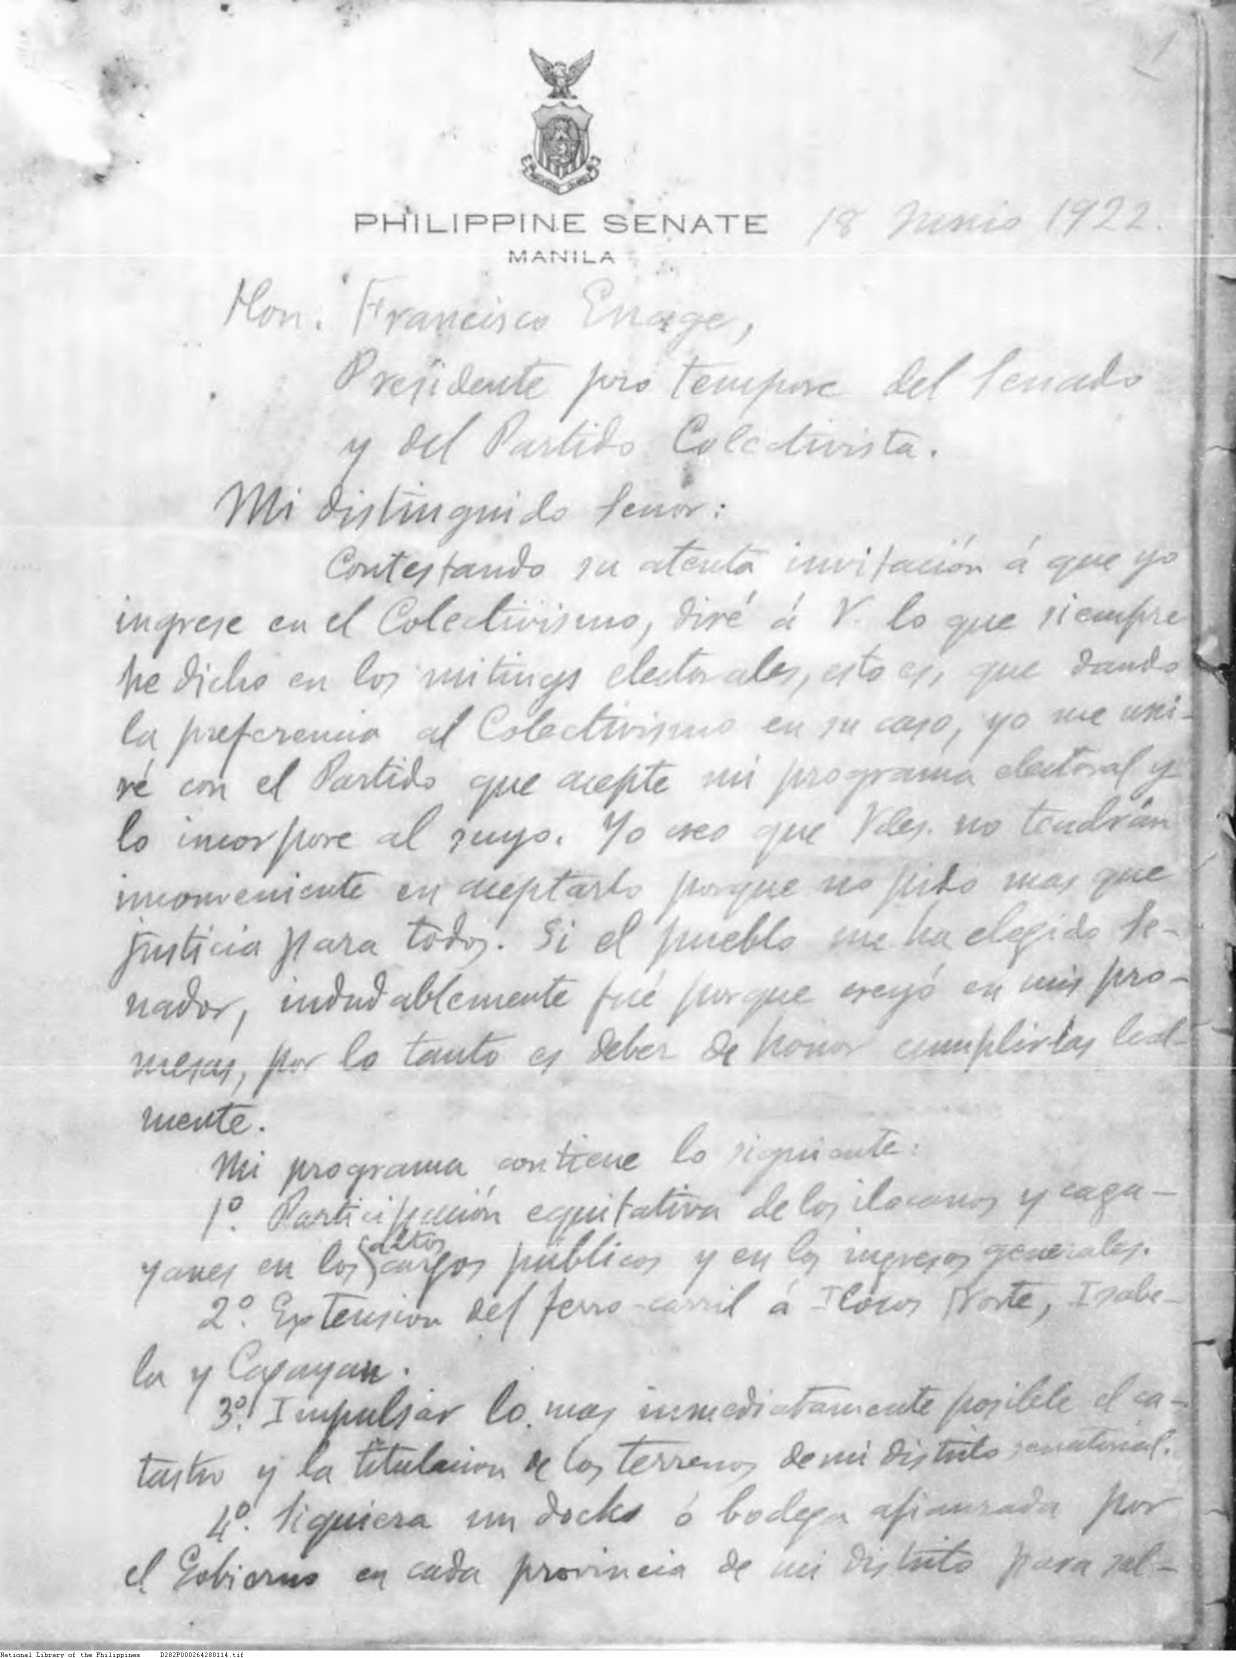 1
PHILIPPINE SENATE 18 Junio 1922.
MANILA
Hon. Francisco Enage,
Presidente pro tempore del Senado
y del Partido Colectivista.
Mi distinguido Señor:
Contestando su atenta invitación á que yo
ingrese en el Colectivismo, diré á V. lo que siempre
he dicho en los mitings electorales, esto es, que dando
la preferencia al Colectivismo en su caso, yo me uni-
ré con el Partido que acepte mi programa electoral y
lo incorpore al suyo. Yo creo que Vdes. no tendrán
inconveniente en aceptarlo porque no pido mas que
justicia para todos. Si el pueblo me ha elegido Se-
nador, indudablemente fué porque creyó en mis pro-
mesas, por lo tanto es deber de honor cumplirlas leal-
mente.
Mi programa contiene lo siguiente:
1º. Participación equitativa de los ilocanos y caga-
yanes en los altos cargos públicos y en los ingresos generales.
2º. Extension del ferro-carril á Ilocos Norte, Isabe-
la y Cagayan.
3º. Impulsar lo mas inmediatamente posible el ca-
tastro y la titulacion de los terrenos de mi distrito senatorial.
4º. Siquiera un docks ó bodega afianzada por
el Gobierno en cada provincia de mi distrito para sal-
National Library of the Philippines D282P000264288114.tif